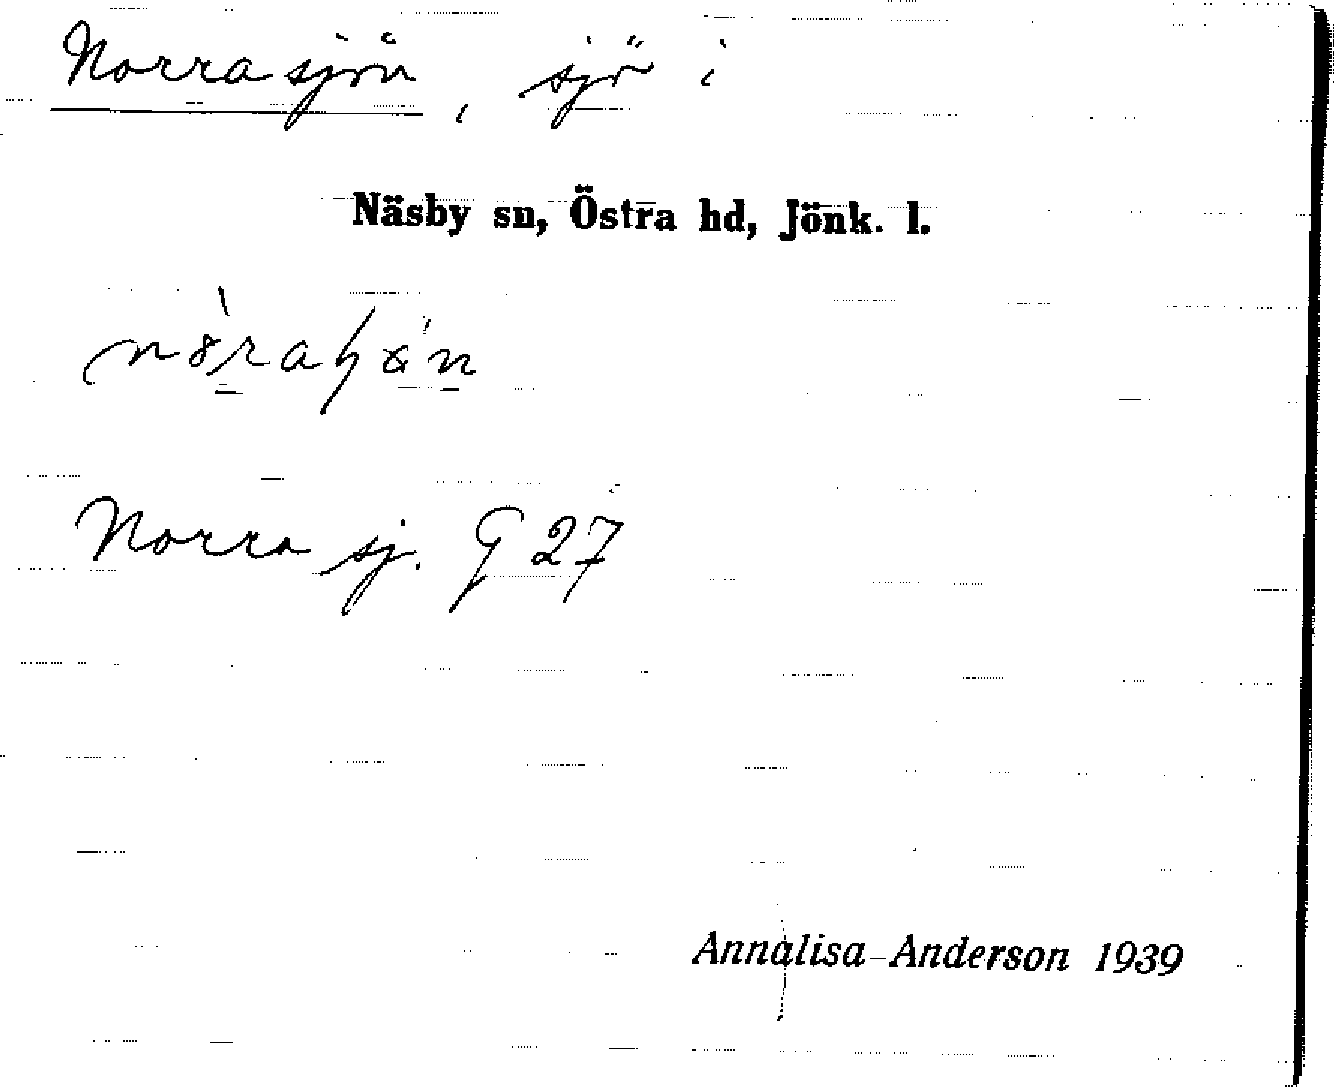 Norrasjön, sjö i
Näsby sn, Östra hd, Jönk. l.
Norra sj. G 27
Annalisa Anderson 1939